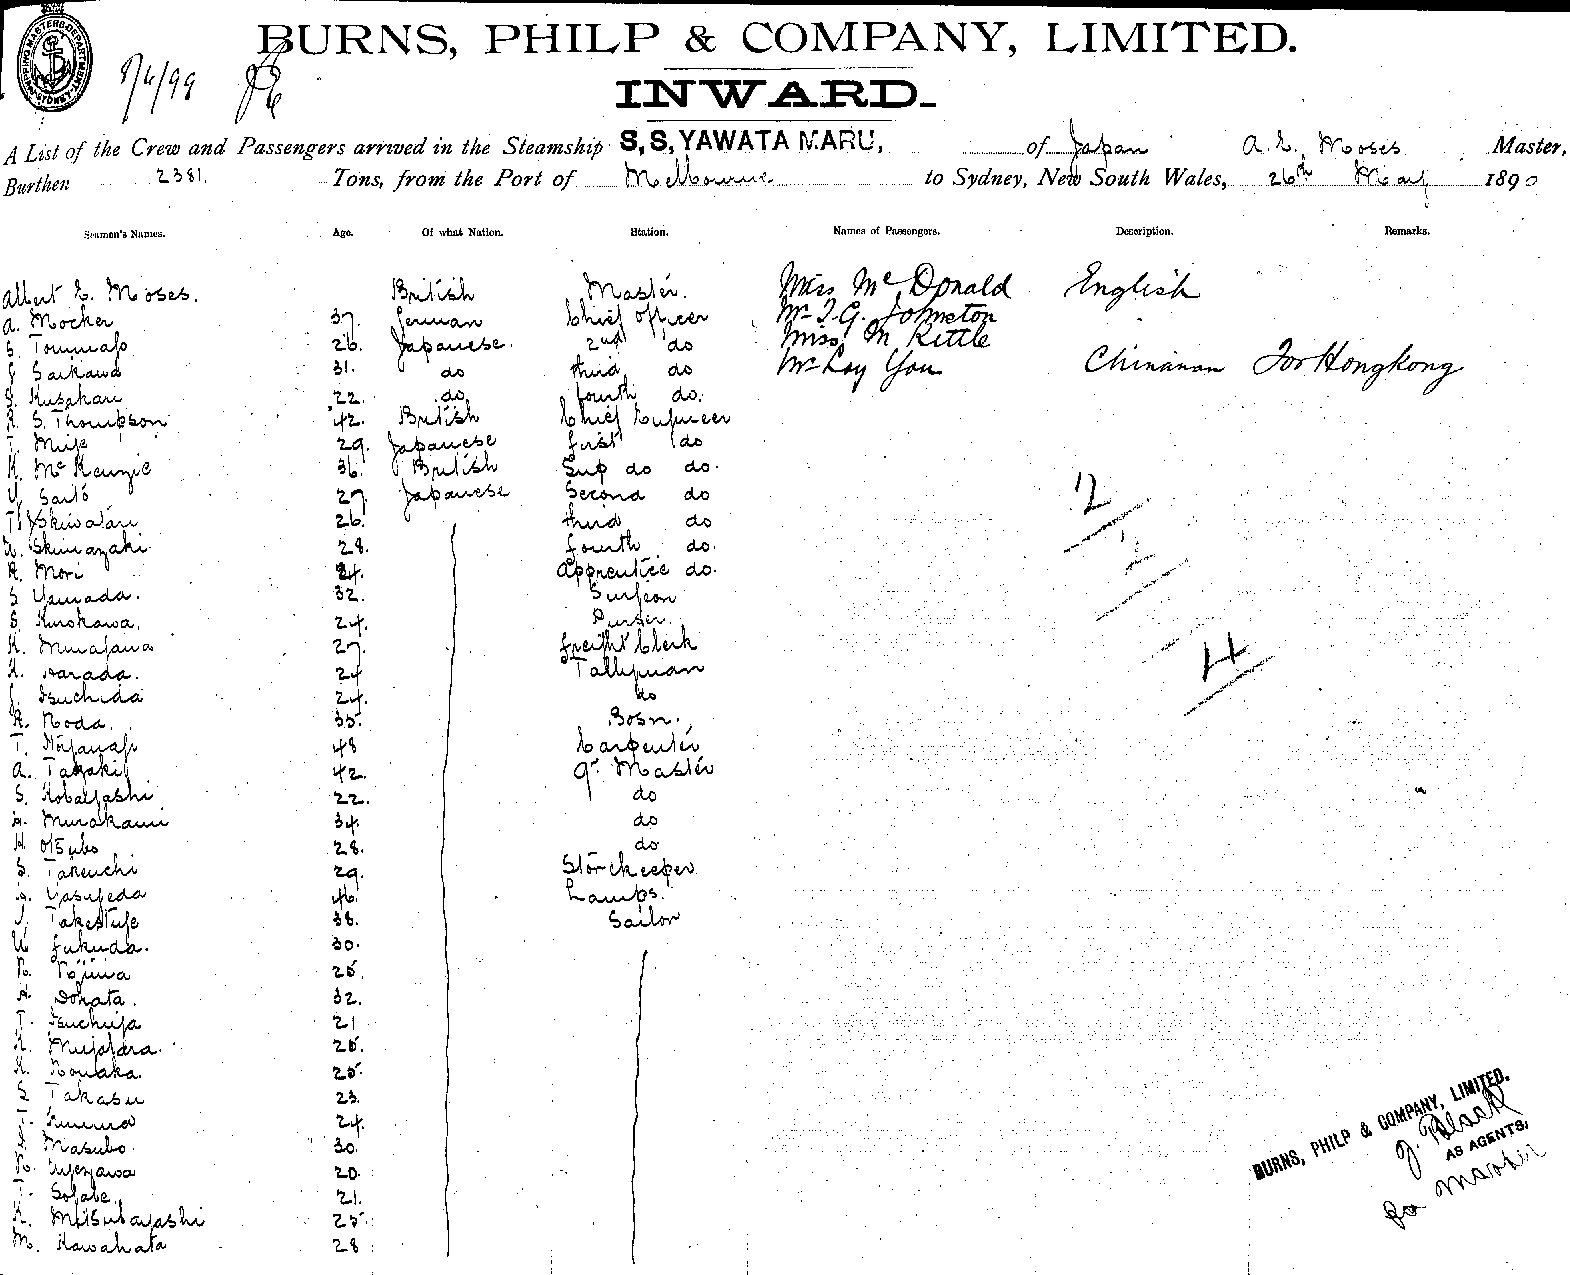 BURNS, PHILP & COMPANY, LIMITED.
INWARD.
A List of the Crew and Passengers arrived in the Steamship S,S, YAWATA MARU, of Japan A. E. Moses Master,
Burthen 2381. Tons, from the Port of Melbourne to Sydney, New South Wales, 26th May 1890
Seamen's Names. Age. Of what Nation. Station. Names of Passengers. Description. Remarks.
Albert E. Moses. British Master. Miss McDonald English
A. Mocker 37. German Chief Officer Mr I. G. Johnston
26. Japanese. 2nd do Miss M Kettle
Saikawa 31. do third do Mr Loy You Chinaman For Hongkong
22. do. fourth do.
S. Thompson 42. British Chief Engineer
29. Japanese first do
K. McKenzie 36. British Sup do do.
Saito 27. Japanese Second do
26. third do
Shimazaki 28. fourth do.
K. Mori 24. Apprentice do.
S Yamada. 32. Surgeon
S. Kurokawa. 24. Purser.
K. 27. Freight Clerk
K. Harada. 24 Tallyman
Tsuchida 24. do
K. Noda. 35. Bosn.
T. 48 Carpenter
A. 42. Qr Master
S. Kobayashi 22. do
Murakami 34. do
H Otsubo 28. do
S. Takeuchi 29. Storekeeper
46. Lamps.
38. Sailor
Fukuda. 30.
25.
32.
T. 21
K. 25.
K. 25.
S Takasu 23.
T. 24.
Masubo. 30.
20.
T. 21.
K. Mitsubayashi 25.
M. Kawahata 28
12
2
4
BURNS, PHILP & COMPANY, LIMITED.
J. Black
AS AGENTS,
for Master